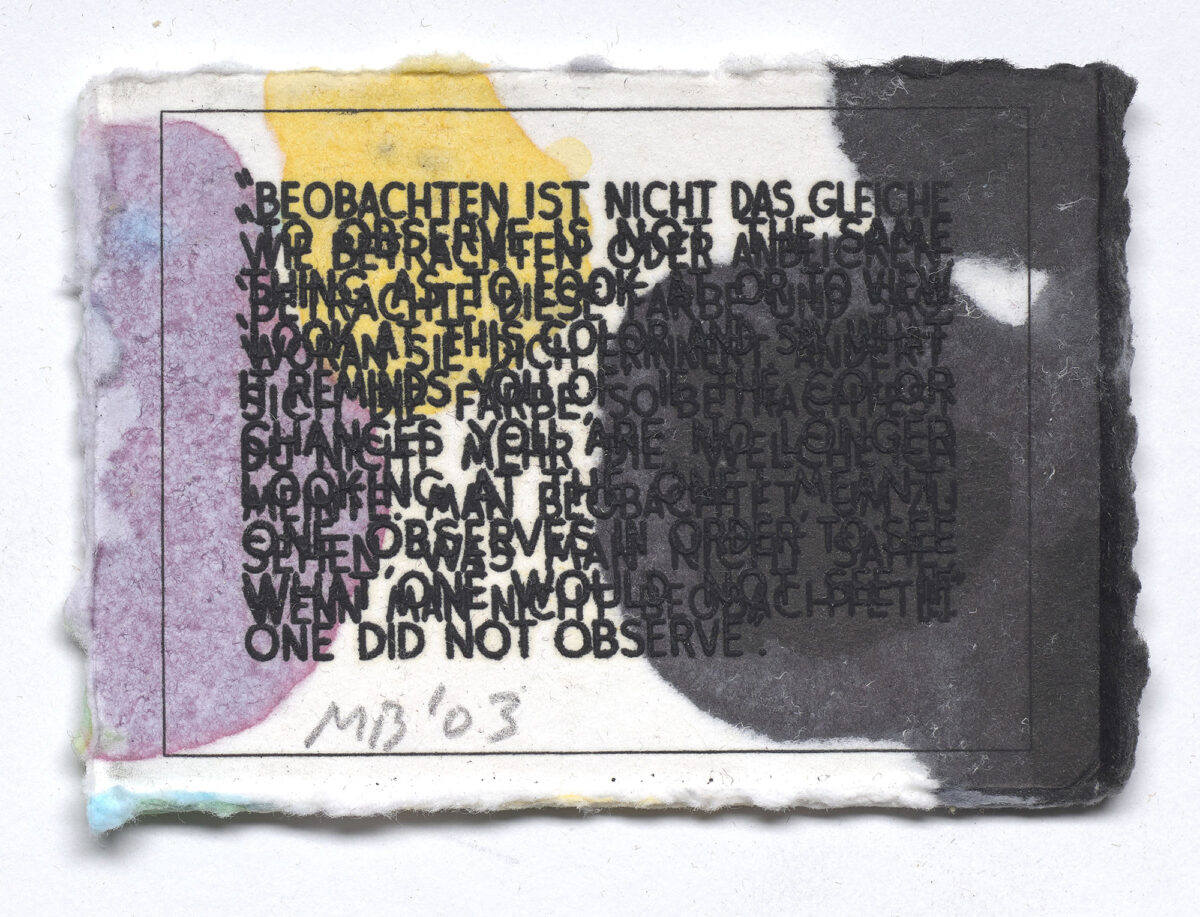 "BEOBACHTEN IST NICHT DAS GLEICHE
"TO OBSERVE IS NOT THE SAME
WIE BETRACHTEN ODER ANBLICKEN.
THING AS TO LOOK AT OR TO VIEW.
'BETRACHTE DIESE FARBE UND SAG,
'LOOK AT THIS COLOR AND SAY WHAT
WORAN SIE DICH ERINNERT'. ÄNDERT
IT REMINDS YOU OF'. IF THE COLOR
SICH DIE FARBE, SO BETRACHTEST
CHANGES YOU ARE NO LONGER
DU NICHT MEHR DIE WELCHE ICH
LOOKING AT THE ONE I MEANT.
MEINTE. MAN BEOBACHTET, UM ZU
ONE OBSERVES IN ORDER TO SEE
SEHEN, WAS MAN NICHT SÄHE,
WHAT ONE WOULD NOT SEE IF
WENN MAN NICHT BEOBACHTETE"
ONE DID NOT OBSERVE".
MB '03